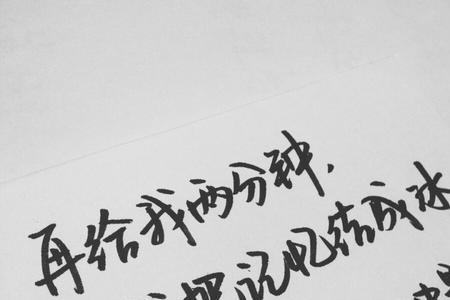 再给我两分钟，
把记忆结成冰